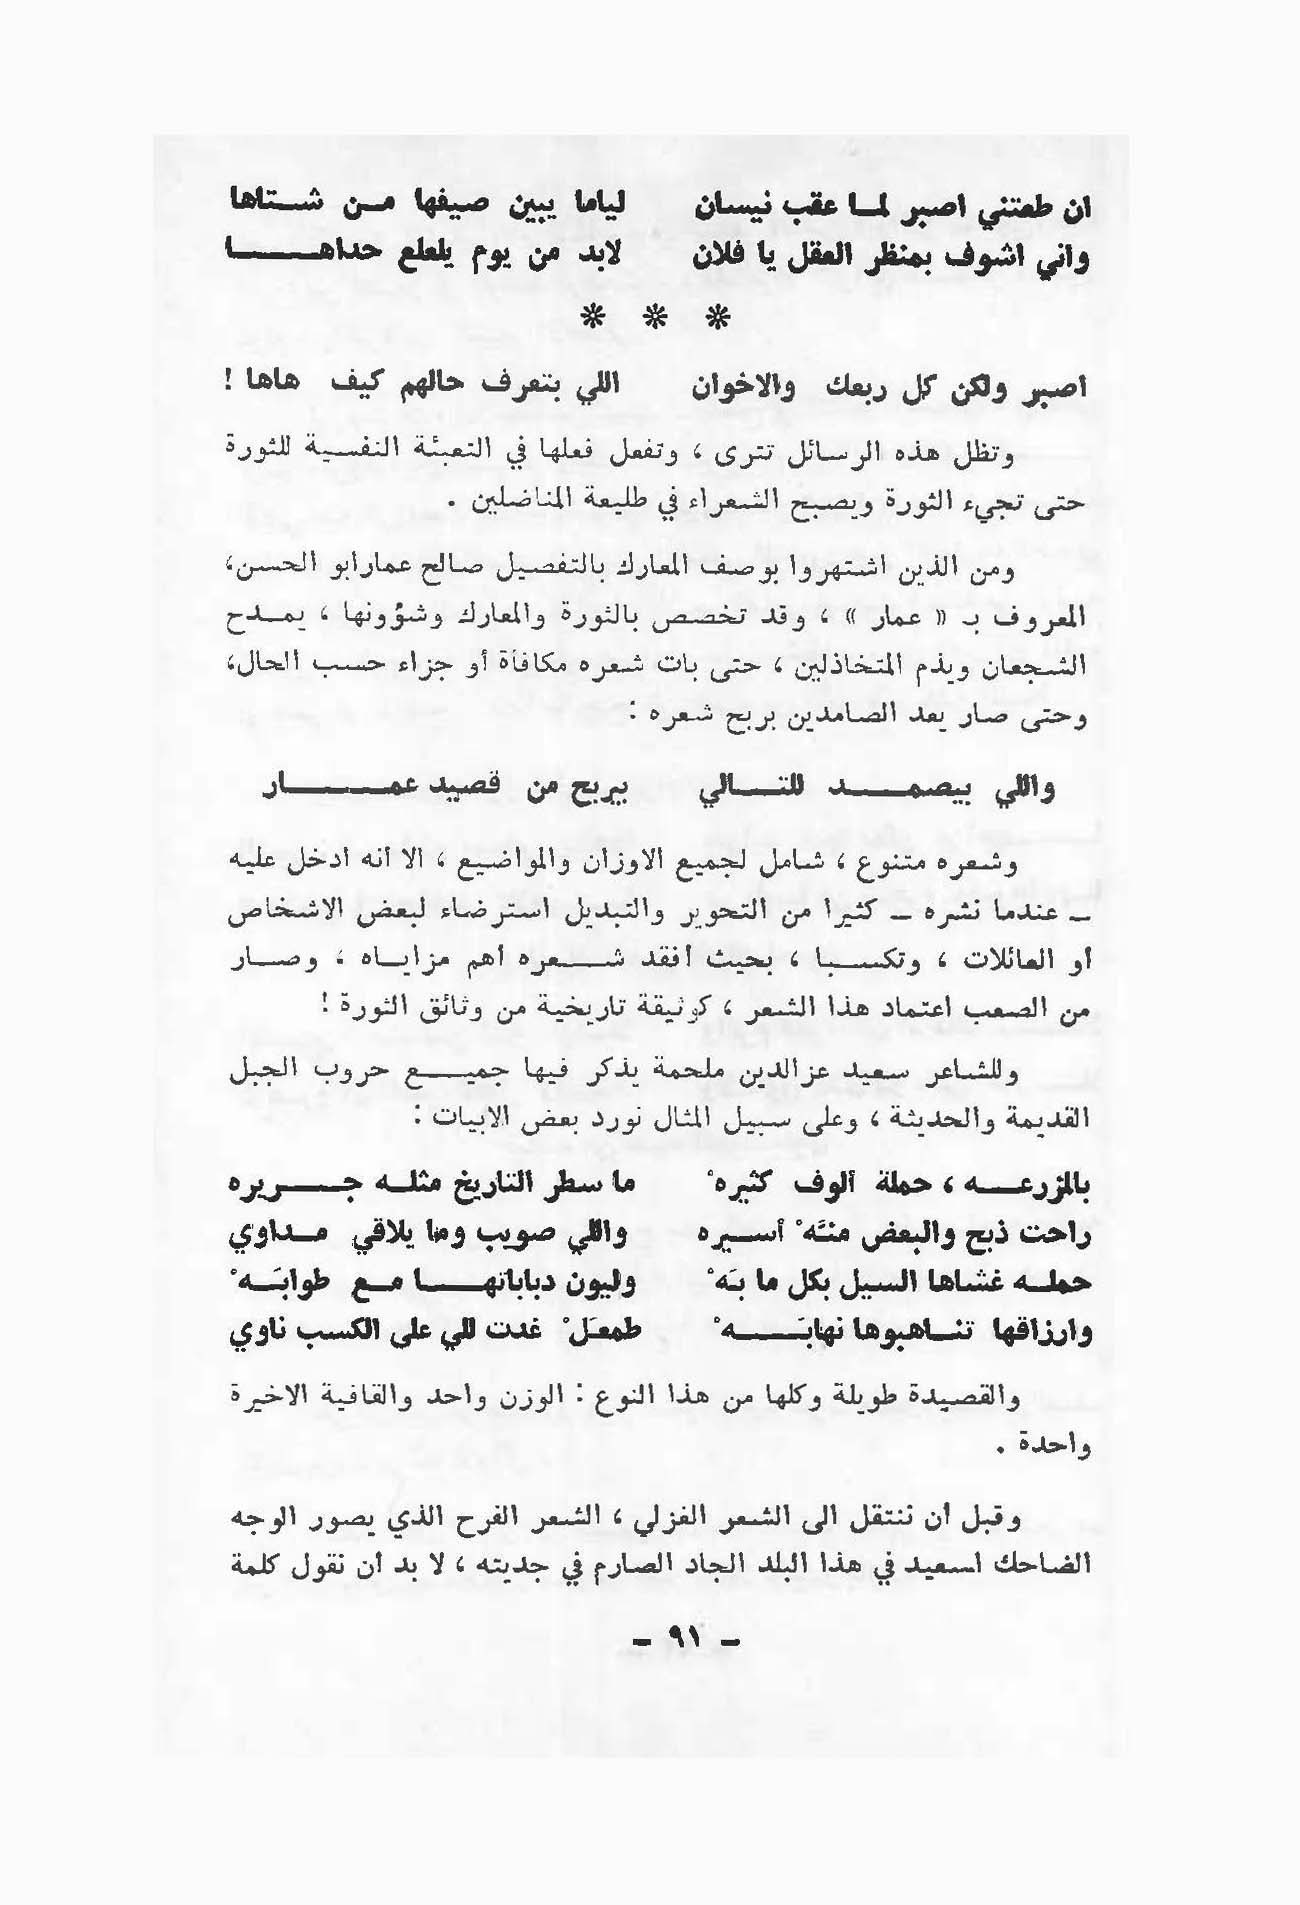 ان طعتني اصبر لما عقب نيسان لياما يبين صيفها من شتاها
واني اشوف بمنظر العقل يا فلان لابد من يوم يلعلع حداها
* * *
اصبر ولكن كل ربعك والاخوان اللي بتعرف حالهم كيف هاها !
وتظل هذه الرسائل تترى ، وتفعل فعلها في التعبئة النفسية للثورة
حتى تجيء الثورة ويصبح الشعراء في طليعة المناضلين .
ومن الذين اشتهروا بوصف المعارك بالتفصيل صالح عمارابو الحسن،
المعروف بـ « عمار » ، وقد تخصص بالثورة والمعارك وشؤونها ، يمدح
الشجعان ويذم المتخاذلين ، حتى بات شعره مكافأة أو جزاء حسب الحال،
وحتى صار يعد الصامدين بربح شعره :
واللي بيصمد للتالي بيربح من قصيد عمار
وشعره متنوع ، شامل لجميع الاوزان والمواضيع ، الا أنه أدخل عليه
ـ عندما نشره ـ كثيرا من التحوير والتبديل استرضاء لبعض الاشخاص
أو العائلات ، وتكسبا ، بحيث أفقد شعره أهم مزاياه ، وصار
من الصعب اعتماد هذا الشعر ، كوثيقة تاريخية من وثائق الثورة !
وللشاعر سعيد عزالدين ملحمة يذكر فيها جميع حروب الجبل
القديمة والحديثة ، وعلى سبيل المثال نورد بعض الابيات :
بالمزرعه ، حملة ألوف كثيرهْ ما سطر التاريخ مثله جريره
راحت ذبح والبعض منَّهْ أسيره واللي صويب وما يلاقي مداوي
حمله غشاها السيل بكل ما بَهْ وليون دباباتها مع طوابَهْ
وارزاقها تناهبوها نهابَهْ طمعَلْ غدت للي على الكسب ناوي
والقصيدة طويلة وكلها من هذا النوع : الوزن واحد والقافية الاخيرة
واحدة .
وقبل أن ننتقل الى الشعر الغزلي ، الشعر الفرح الذي يصور الوجه
الضاحك السعيد في هذا البلد الجاد الصارم في جديته ، لا بد أن نقول كلمة
ـ ٩١ ـ